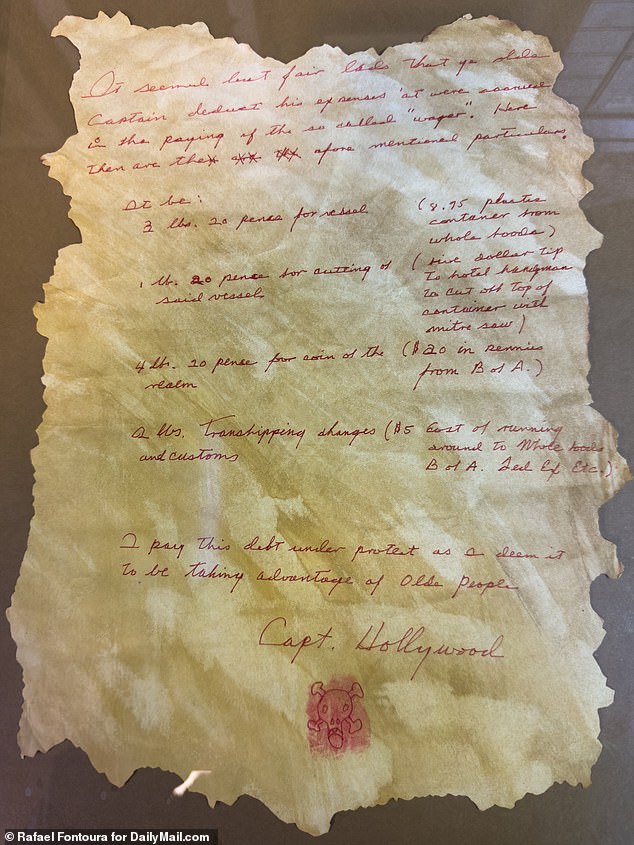 It seemes but fair lads that ye olde
Captain deduct his expenses 'at were accrued
in the paying of the so called "wager". Here
then are the afore mentioned particulars.
It be:
3 lbs. 20 pense for vessel
(8.95 plastic
container from
whole foods)
1 lb. 20 pense for cutting of
said vessel
(five dollar tip
to hotel handyman
to cut off top of
container with
mitre saw)
4 lb. 20 pense for coin of the
realm
($20 in pennies
from B of A.)
2 lbs. Transhipping charges
and customs
($5 Cost of running
around to Whole foods
B of A. Fed Ex Etc.)
I pay this debt under protest as I deem it
to be taking advantage of Olde People
Capt. Hollywood
© Rafael Fontoura for DailyMail.com